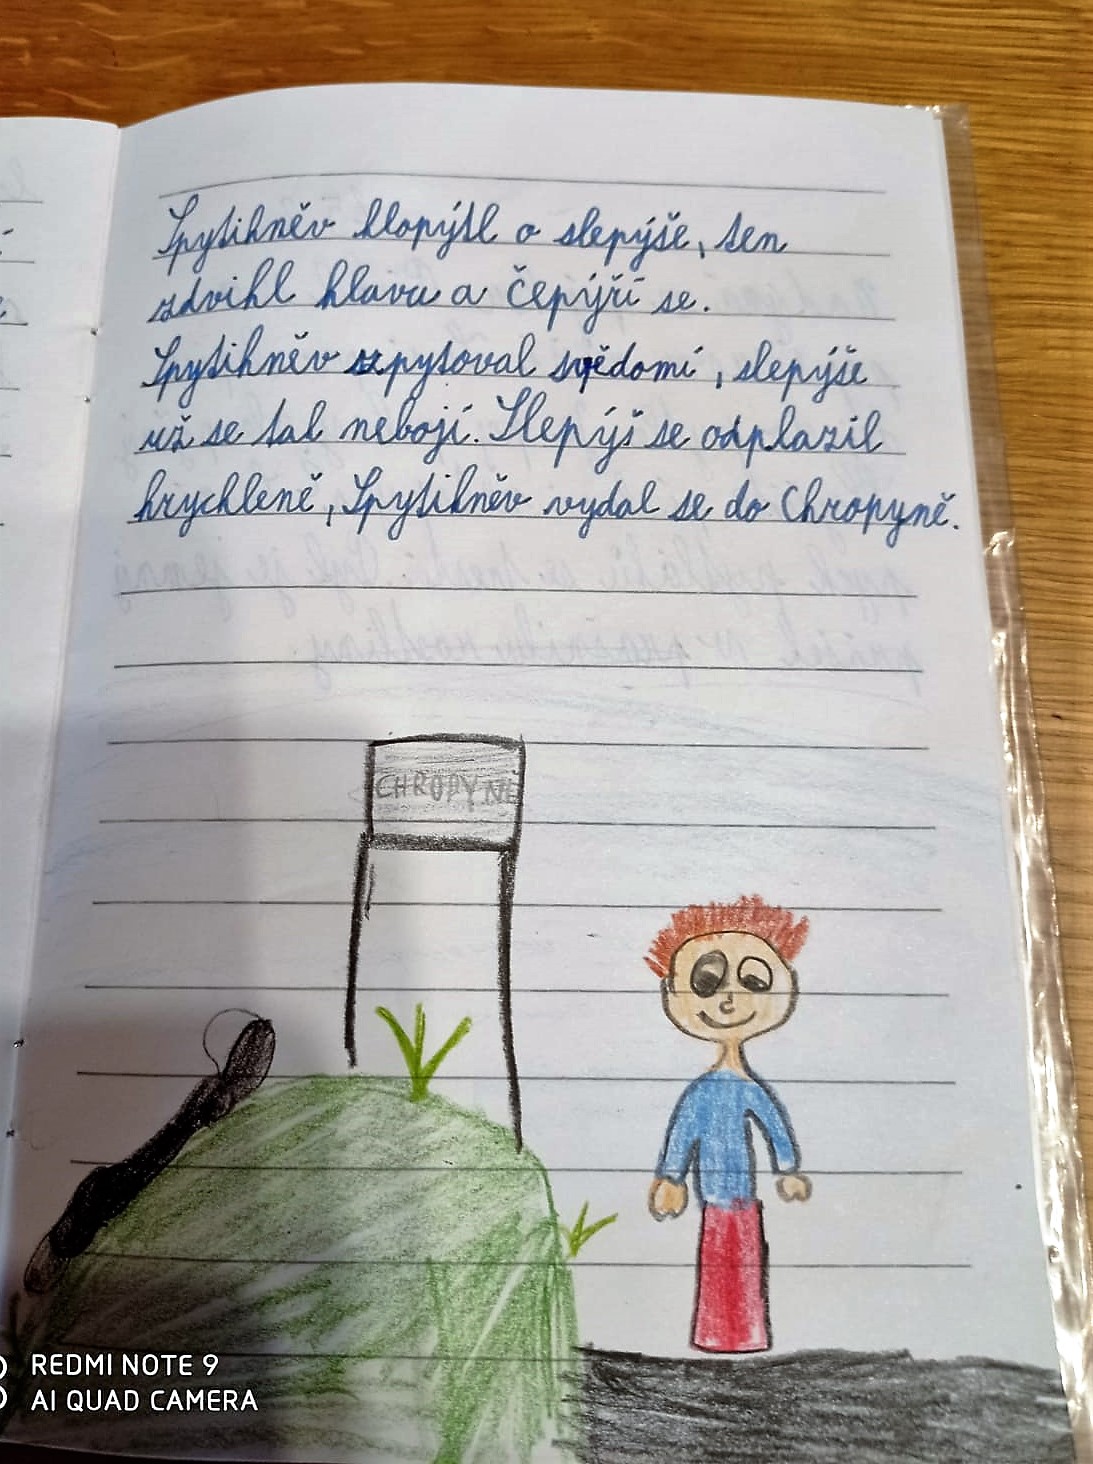 Spytihněv klopýtl o slepýše, ten
zdvihl hlavu a čepýří se.
Spytihněv zpytoval svědomí, slepýše
už se tak nebojí. Slepýš se odplazil
hrychleně, Spytihněv vydal se do Chropyně.
CHROPYNĚ
REDMI NOTE 9
AI QUAD CAMERA